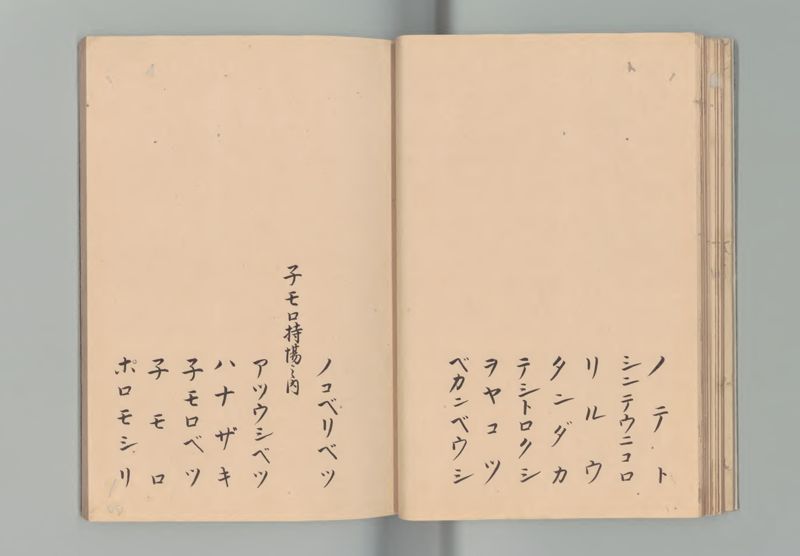 ノテト
シンテウニコロ
リルウ
タンダカ
テシトロクシ
ヲヤコツ
ベカンベウシ
ノコベリベツ
子モロ持場之内
アツウシベツ
ハナザキ
子モロベツ
子モロ
ポロモシリ